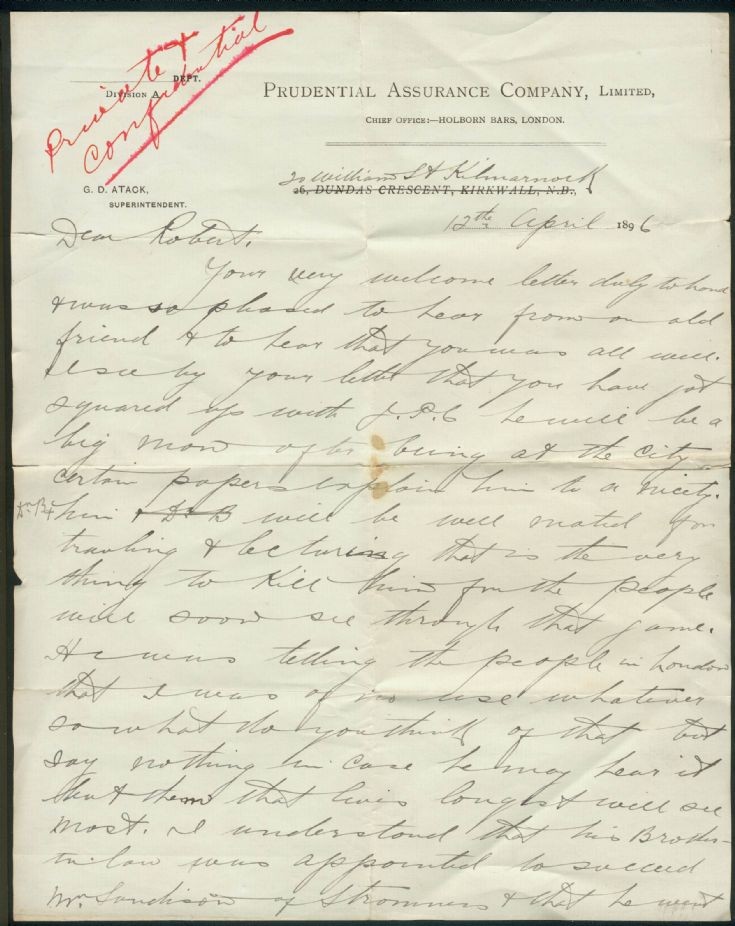 Private &
Confidential
DEPT.
Division A.
PRUDENTIAL ASSURANCE COMPANY, LIMITED,
CHIEF OFFICE:—HOLBORN BARS, LONDON.
20 William St Kilmarnock
26, DUNDAS CRESCENT, KIRKWALL, N.B.,
G. D. ATACK,
SUPERINTENDENT.
12th April 1896
Dear Robert.
Your very welcome letter duly to hand
& was so pleased to hear from an old
friend & to hear that you was all well.
I see by your letter that you have got
squared up with J.P.C he will be a
big man after being at the City
certain papers explain him to a nicety.
Dr B & him & Dr B will be well mated for
travling & lecturing that is the very
thing to kill him for the people
will soon see through that game.
He was telling the people in London
that I was of no use whatever
so what do you think of that but
say nothing in case he may hear it
but them that lives longest will see
most. I understand that his Brother-
in-law was appointed to succeed
Mr Sandison of Stromness & that he went